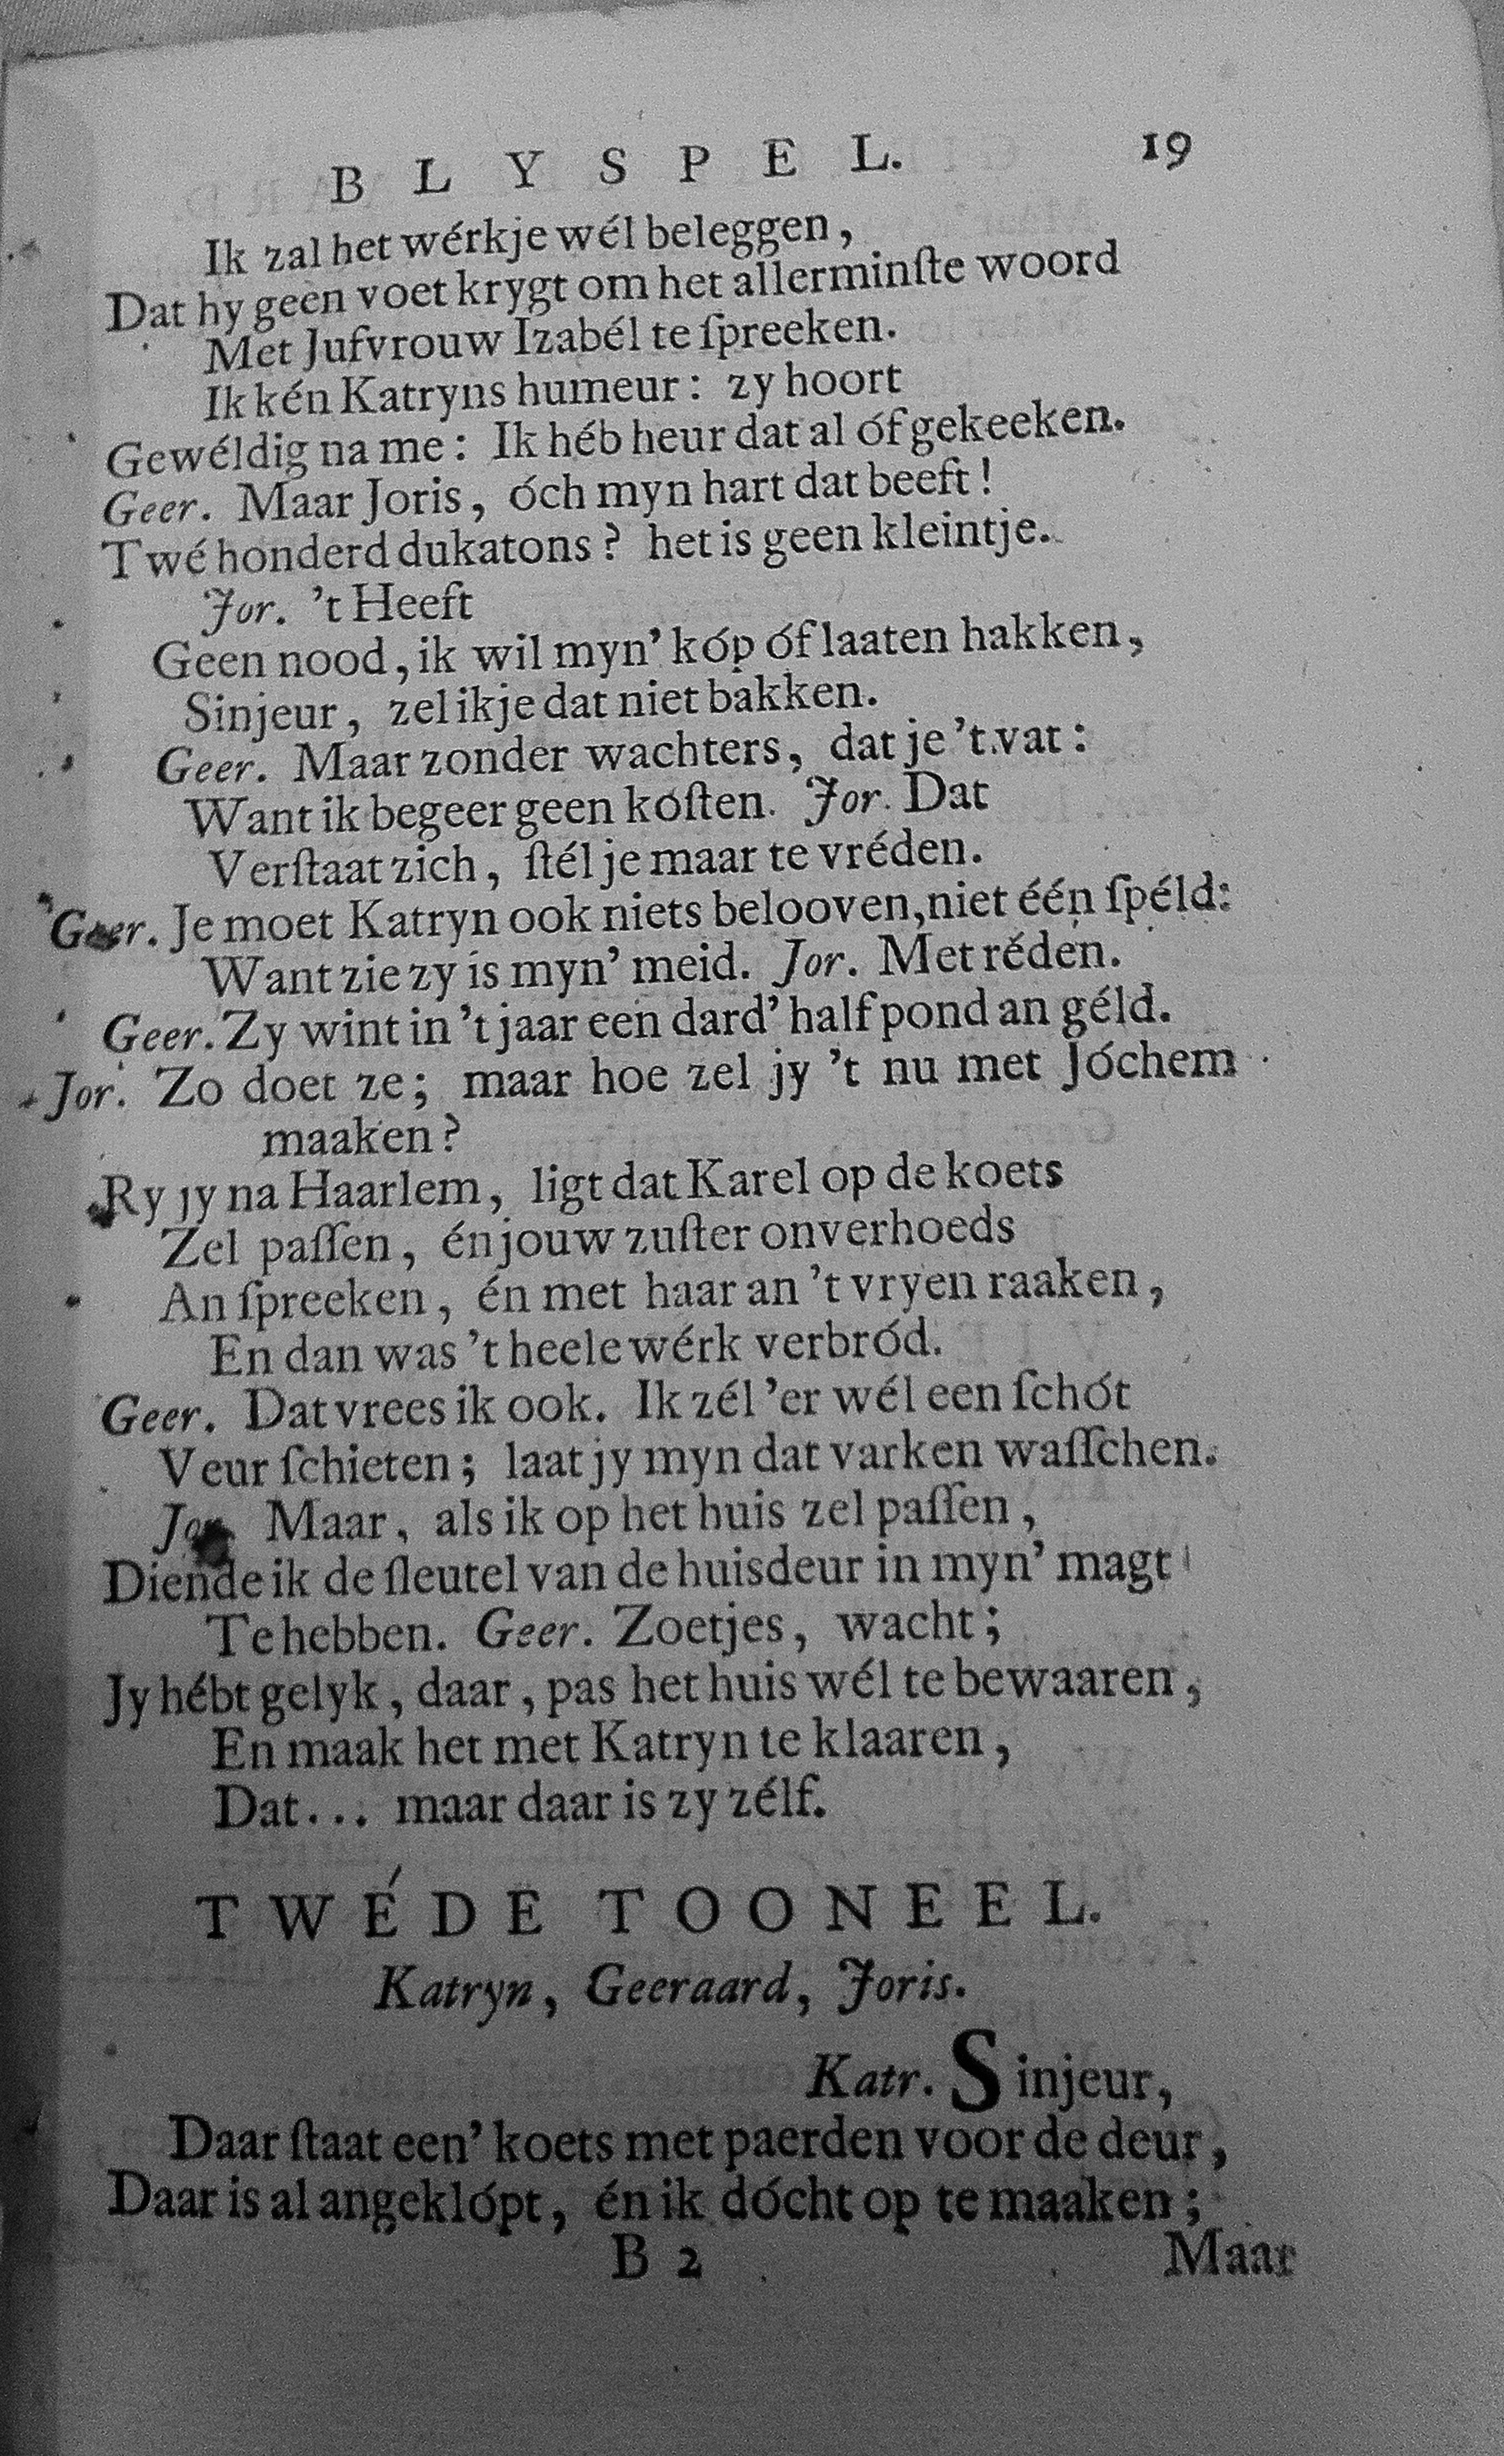 BLYSPEL. 19
Ik zal het wérkje wél beleggen,
Dat hy geen voet krygt om het allerminſte woord
Met Jufvrouw Izabél te ſpreeken.
Ik kén Katryns humeur: zy hoort
Gewéldig na me: Ik héb heur dat al óf gekeeken.
Geer. Maar Joris, óch myn hart dat beeft!
Twé honderd dukatons? het is geen kleintje.
Jor. 't Heeft
Geen nood, ik wil myn' kóp óf laaten hakken,
Sinjeur, zel ik je dat niet bakken.
Geer. Maar zonder wachters, dat je 't vat:
Want ik begeer geen kóſten. Jor. Dat
Verſtaat zich, ſtél je maar te vréden.
Geer. Je moet Katryn ook niets belooven, niet één ſpéld:
Want zie zy is myn' meid. Jor. Met réden.
Geer. Zy wint in 't jaar een dard' half pond an géld.
Jor. Zo doet ze; maar hoe zel jy 't nu met Jóchem
maaken?
Ry jy na Haarlem, ligt dat Karel op de koets
Zel paſſen, én jouw zuſter onverhoeds
An ſpreeken, én met haar an 't vryen raaken,
En dan was 't heele wérk verbród.
Geer. Dat vrees ik ook. Ik zél 'er wél een ſchót
Veur ſchieten; laat jy myn dat varken waſſchen.
Jor. Maar, als ik op het huis zel paſſen,
Diende ik de ſleutel van de huisdeur in myn' magt
Te hebben. Geer. Zoetjes, wacht;
Jy hébt gelyk, daar, pas het huis wél te bewaaren,
En maak het met Katryn te klaaren,
Dat... maar daar is zy zélf.
TWÉDE TOONEEL.
Katryn, Geeraard, Joris.
Katr. Sinjeur,
Daar ſtaat een' koets met paerden voor de deur,
Daar is al angeklópt, én ik dócht op te maaken;
B 2 Maar